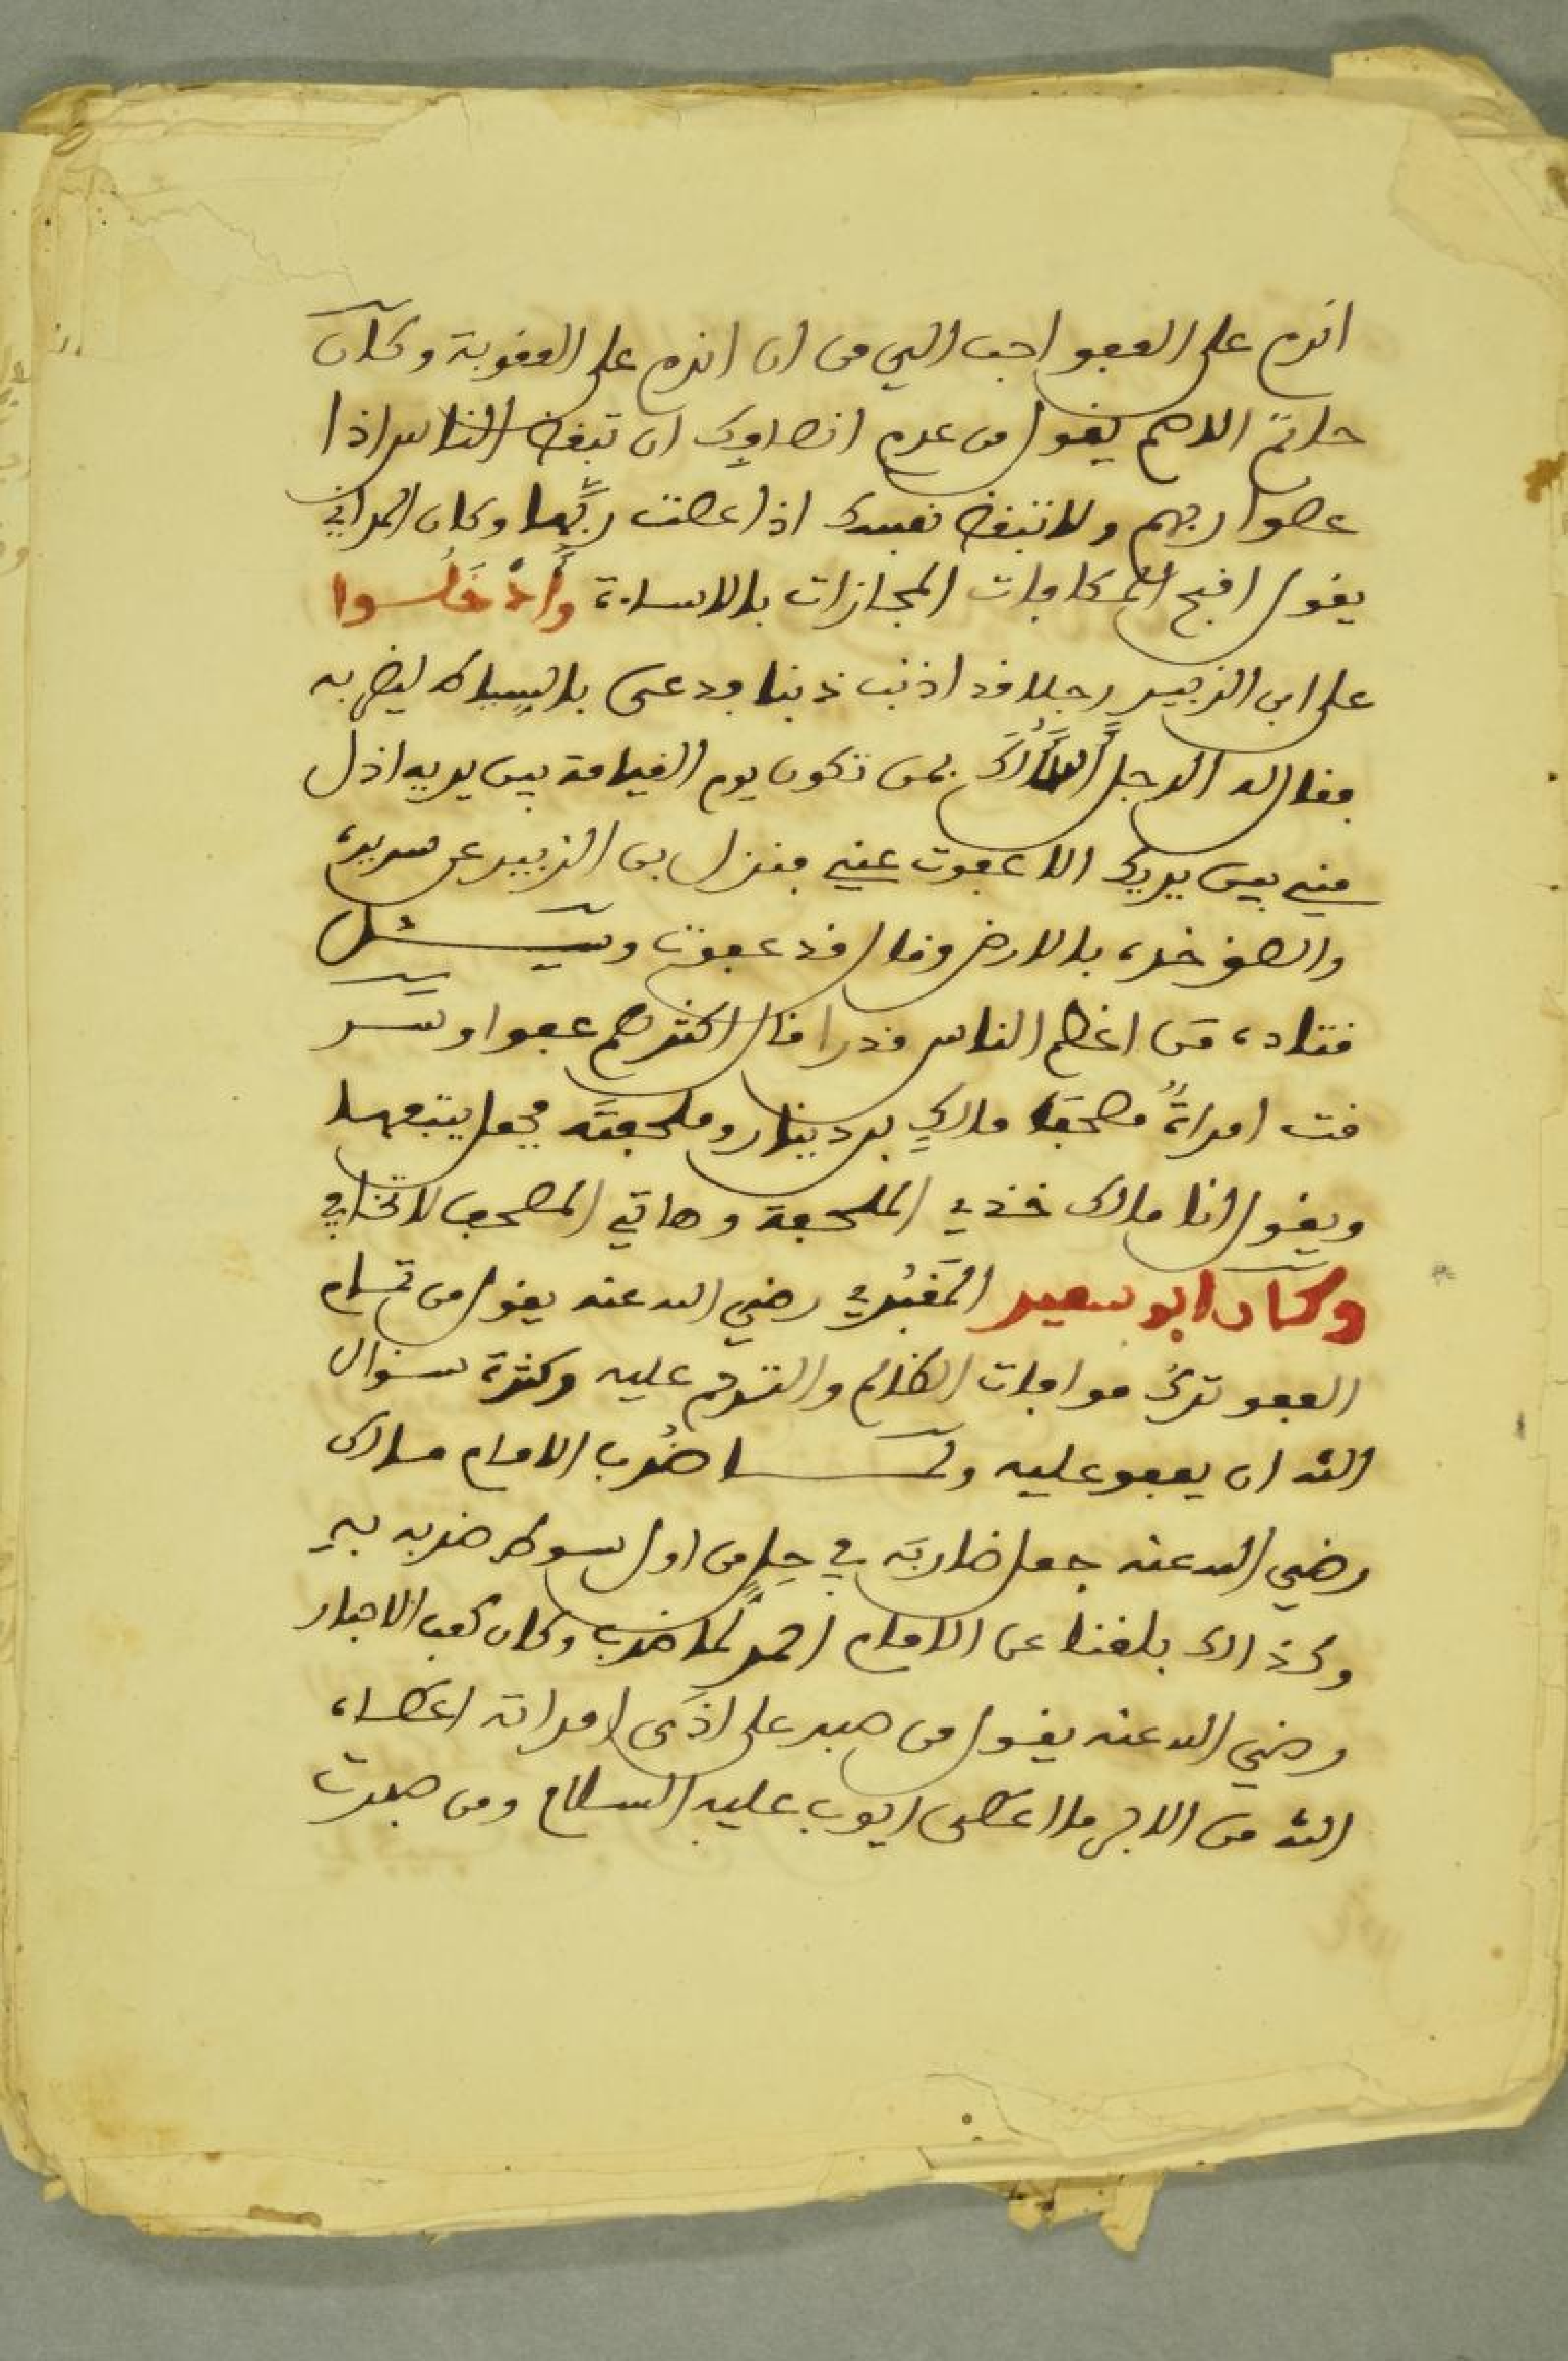 اندم على العفو احب الي من ان اندم على العقوبة وكان
حاتم الاصم يقول من عدم انصافك ان تبغض الناس اذا
عصوا ربهم ولا تبغض نفسك اذا عصت ربها وكان
يقول اقبح المكافات المجازات بالاساءة وَأدْخَلُوا
على ابن الزبير رجلا قد اذنب ذنبا فدعى بالسياط ليضربه
فقال له الرجل اسألك بمن تكون يوم القيامة بين يديه اذل
مني بين يديك الا عفوت عني فنزل بن الزبير عن سريره
والصق خده بالارض وقال قد عفوت وسئل
قتاده من اعظم الناس قدرا قال اكثرهم عفوا وسر
قت امراةٌ مصحف مالك بن دينار وملحفته فجعل يتبعها
ويقول انا مالك خذي الملحفة وهاتي المصحف لا تخافي
وكان ابو سعيد المَقْبُري رضي الله عنه يقول من تمام
العفو ترك موافات الظالم والترحم عليه وكثرة سؤال
الله ان يعفو عليه ولما ضُرب الامام مالك
رضي الله عنه جعل ضاربه في حِلٍ من اول سوط ضربه به
وكذالك بلغنا عن الامام احمد لما ضرب وكان كعب الاحبار
رضي الله عنه يقول من صبر على اذى امراته اعطاه
الله من الاجر ما اعطى ايوب عليه السلام ومن صبرت